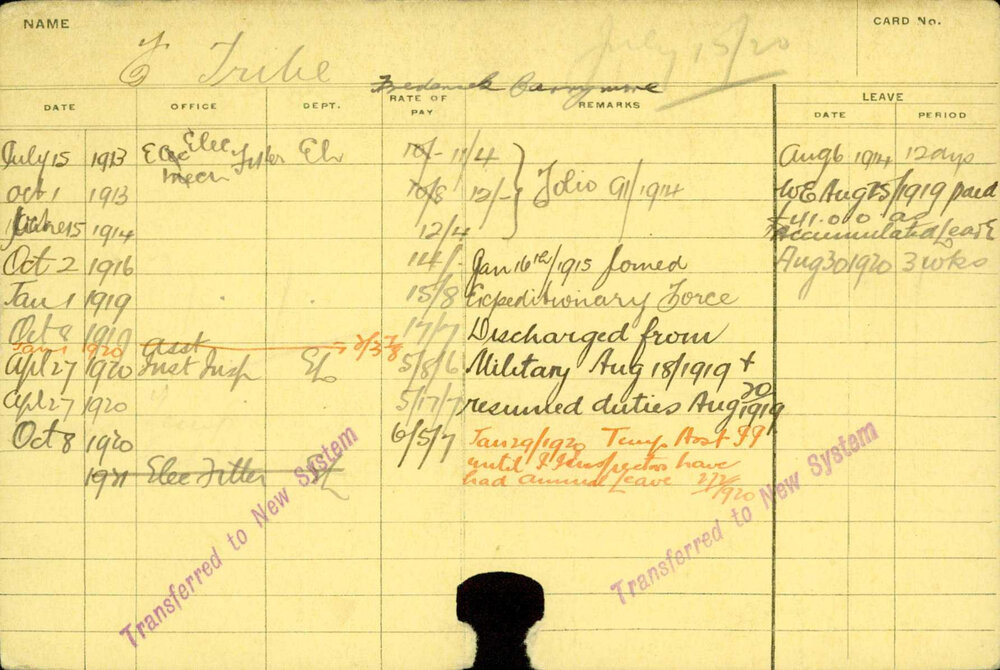 NAME
CARD No.
Tribe
July 15/20
Frederick Barrymore
DATE OFFICE DEPT. RATE OF PAY REMARKS LEAVE
DATE PERIOD
July 15 1913 Elec Fitter 10/- 11/4 Aug 6 1914 12 days
Mecn
Oct 1 1913 10/8 12/- Folio 91/1914 WE Aug 25/1919 paid
£41.0.0 as
1914 12/4 Accumulated Leave
Oct 2 1916 14/- Jan 16th/1915 Joined Aug 30 1920 3 wks
Jan 1 1919 15/8 Expeditionary Force
Oct 8 1919 17/7 Discharged from
Jan 1 1920 Asst
Apl 27 1920 Inst Insp 5/8/6 Military Aug 18/1919 +
Apl 27 1920 5/17/7 resumed duties Aug 20 1919
Oct 8 1920 6/5/7 Jan 29/1920 Temp
1921 Elec Fitter until have
had annual leave
Transferred to New System
Transferred to New System